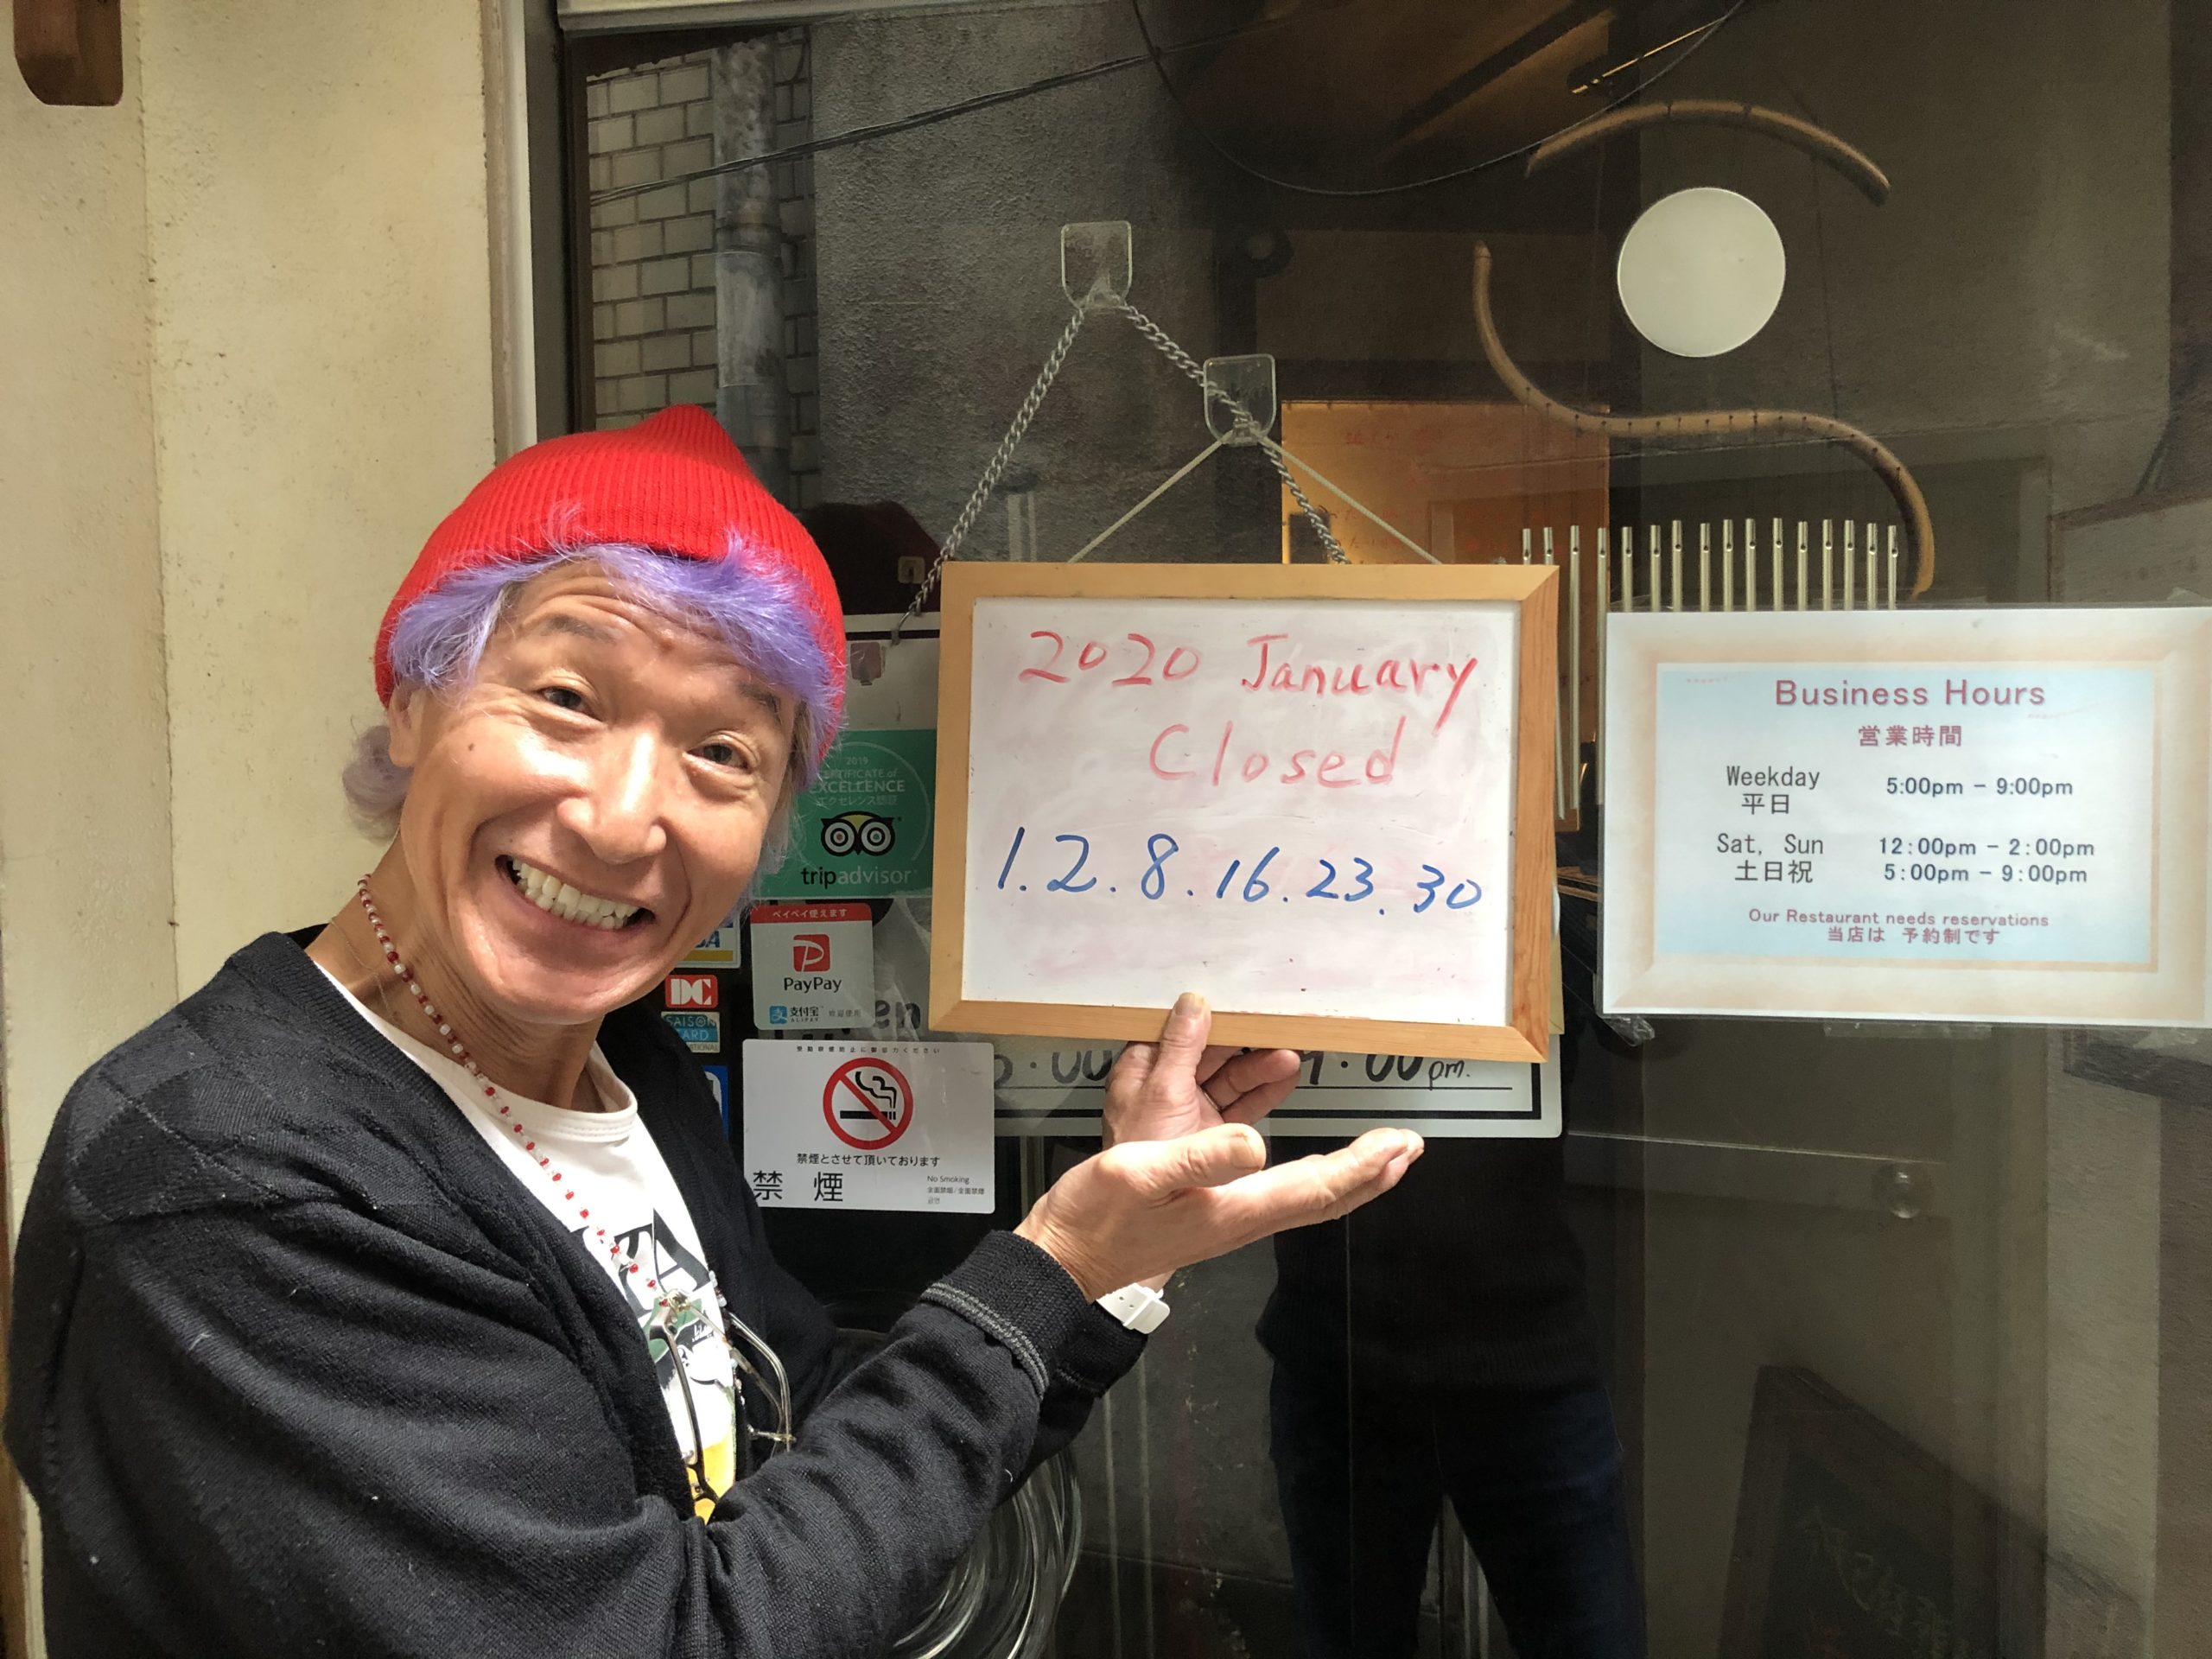 2020 January
Closed
1.2.8.16.23.30
Business Hours
営業時間
Weekday 5:00pm - 9:00pm
平日
Sat, Sun 12:00pm - 2:00pm
土日祝 5:00pm - 9:00pm
Our Restaurant needs reservations
当店は 予約制です
2019
CERTIFICATE of
EXCELLENCE
エクセレンス認証
tripadvisor
ペイペイ使えます
PayPay
支付宝
ALIPAY
DC
SAISON
CARD
:00 9:00 pm.
受動喫煙防止に御協力ください
禁煙とさせて頂いております
禁煙
No Smoking